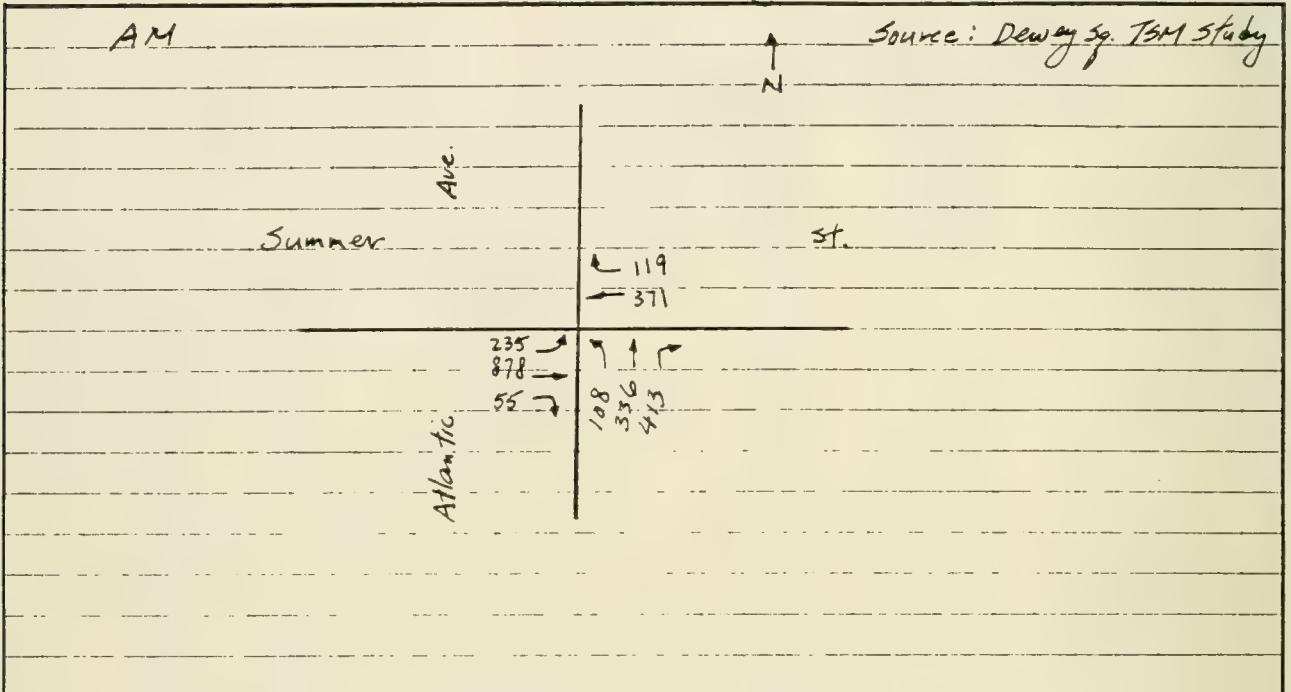 AM
Source: Dewey Sq. TSM Study
N
Ave.
Summer
St.
119
371
235
878
55
108
336
413
Atlantic